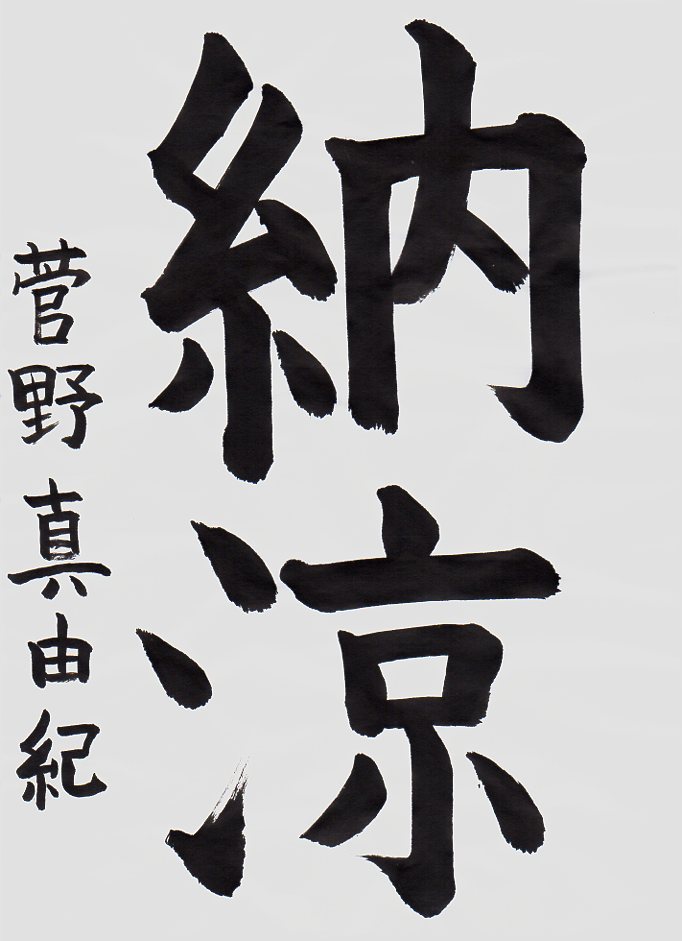 納涼
菅野真由紀